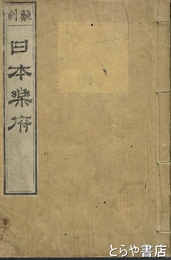 日本樂府
とらや書店